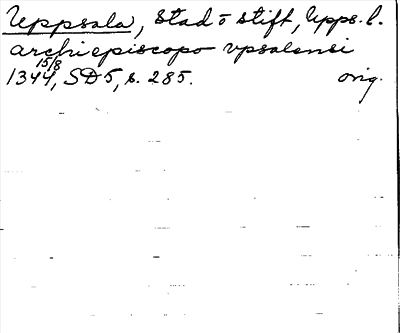 Uppsala, stad o stift, Upps. l.
archiepiscopo vpsalensi
1344 15/8, SD 5, s. 285. orig.